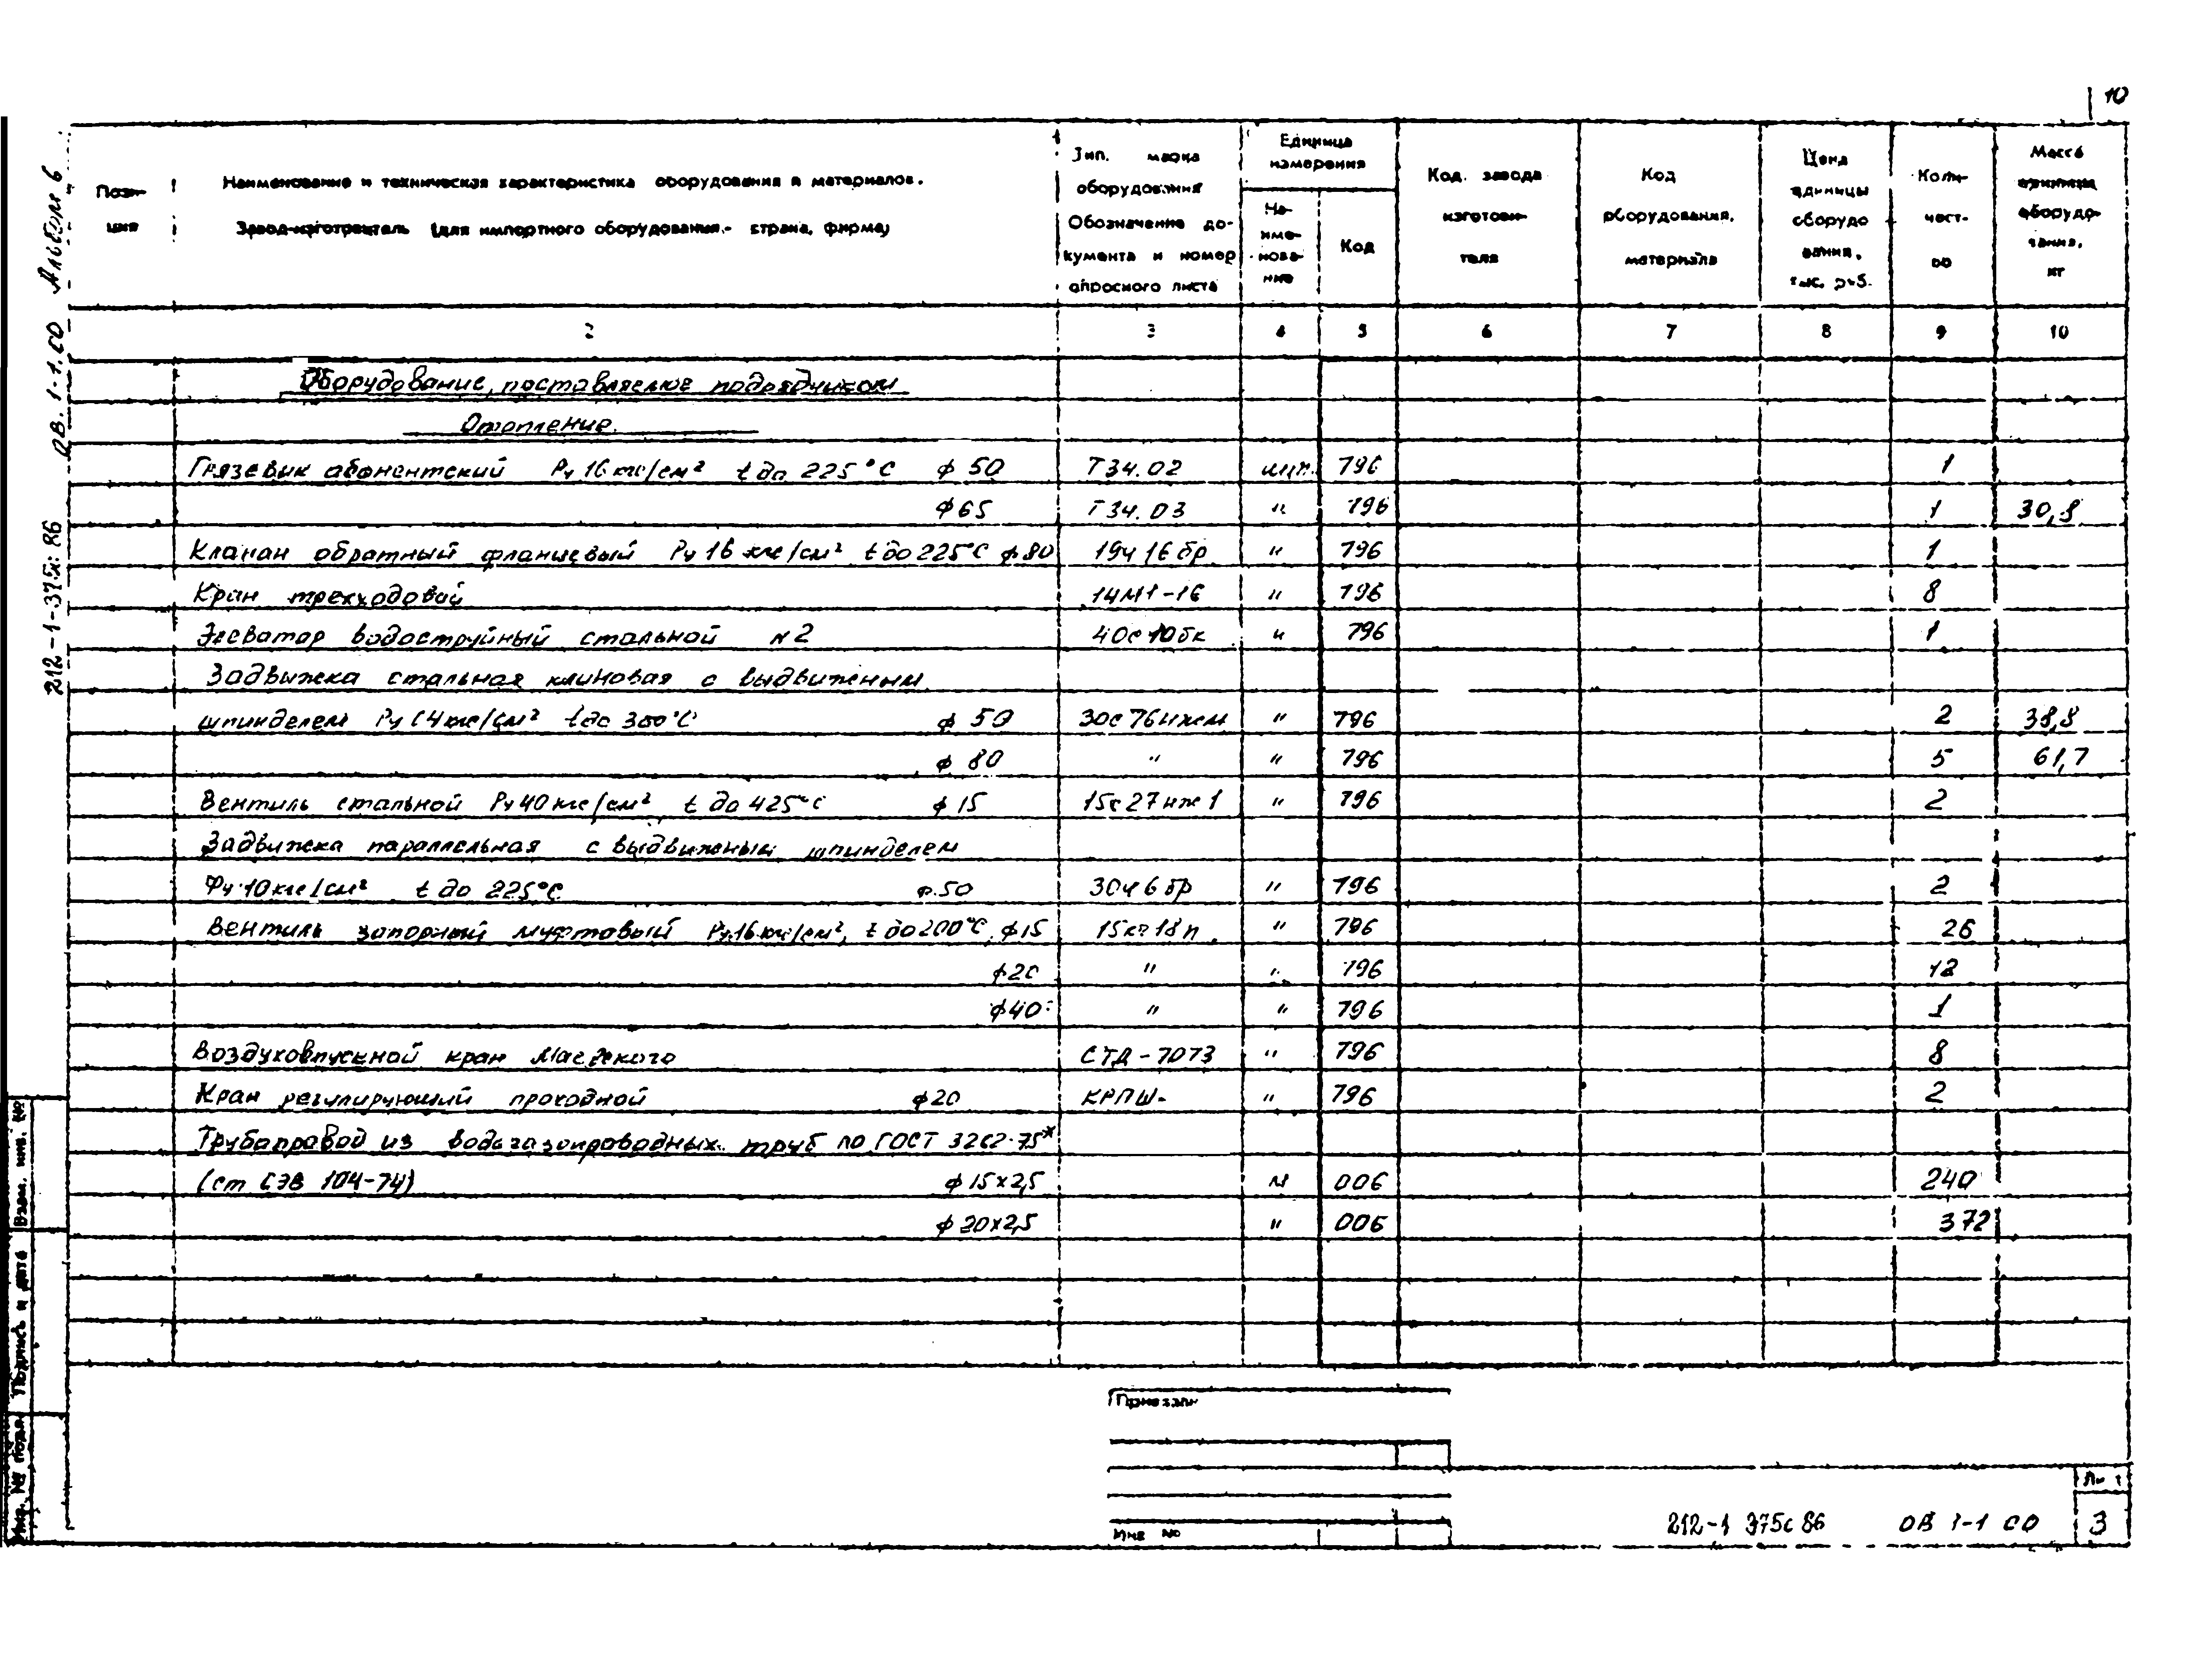 10
Альбом 6
ОВ. 1-1.СО
212-1-375с.86
Пози-
ция
Наименование и техническая характеристика оборудования и материалов.
Завод-изготовитель (для импортного оборудования - страна, фирма)
Тип. марка
оборудования
Обозначение до-
кумента и номер
опросного листа
Единица
измерения
На-
име-
нова-
ние
Код
Код. завода
изготови-
теля
Код
оборудования,
материала
Цена
единицы
оборудо
вания,
тыс. руб.
Коли-
чест-
во
Масса
единицы
оборудо-
вания,
кг
2 3 4 5 6 7 8 9 10
Оборудование, поставляемое подрядчиком
Отопление.
Грязевик абонентский Ру 16 кгс/см² t до 225°С ф 50 Т34.02 шт. 796 1
ф65 Т34.03 " 796 1 30,8
Клапан обратный фланцевый Ру 16 кгс/см² t до 225°С ф80 19ч 16 бр " 796 1
Кран трехходовой 14М1-16 " 796 8
Элеватор водоструйный стальной N2 40с 10бк " 796 1
Задвижка стальная клиновая с выдвижным
шпинделем Ру 64 кгс/см² t до 300°С ф 50 30с 76нжм " 796 2 38,8
ф 80 " " 796 5 61,7
Вентиль стальной Ру 40 кгс/см² t до 425°С ф 15 15с 27 нж 1 " 796 2
Задвижка параллельная с выдвижным шпинделем
Ру 10 кгс/см² t до 225°С ф.50 30ч 6 бр " 796 2
Вентиль запорный муфтовый Ру 16 кгс/см², t до 200°С, ф15 15кч 18 п. " 796 26
ф20 " " 796 12
ф40 " " 796 1
Воздуховпускной кран Маевского СТД-7073 " 796 8
Кран регулирующий проходной ф20 КРПШ- " 796 2
Трубопровод из водогазопроводных труб по ГОСТ 3262-75*
(ст СЭВ 104-74) ф 15х2,5 м 006 240
ф 20х2,5 " 006 372
Привязан
Инв №
212-1 375с 86 ОВ 1-1 СО
Лист
3
Взам. инв. №
Подпись и дата
Инв. № подл.